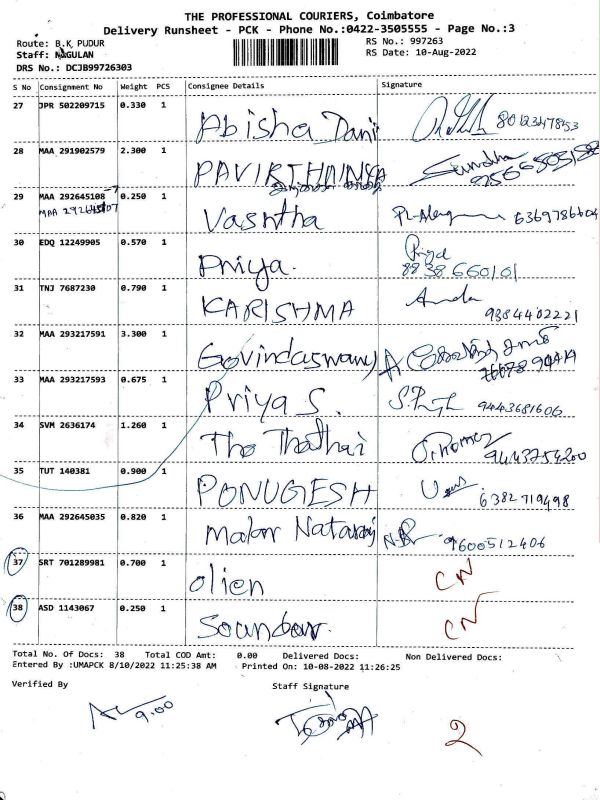 THE PROFESSIONAL COURIERS, Coimbatore
Delivery Runsheet - PCK - Phone No.:0422-3505555 - Page No.:3
Route: B.K. PUDUR RS No.: 997263
Staff: NAGULAN RS Date: 10-Aug-2022
DRS No.: DCJB99726303
S No Consignment No Weight PCS Consignee Details Signature
27 JPR 502209715 0.330 1 Abisha Dani
28 MAA 291902579 2.300 1
29 MAA 292645108 0.250 1 Vasntha 6369786604
30 EDQ 12249905 0.570 1 Priya. Priya
8838660101
31 TNJ 7687230 0.790 1 KARISHMA 9384402221
32 MAA 293217591 3.300 1 Govindaswamy
33 MAA 293217593 0.675 1 Priya S. 9443681606
34 SVM 2636174 1.260 1 Tho Thathai
35 TUT 140381 0.900 1 PONUGESH 6382719498
36 MAA 292645035 0.820 1 Malar Nataraj 9600512406
37 SRT 701289981 0.700 1 olien CN
38 ASD 1143067 0.250 1 Soundar. CN
Total No. Of Docs: 38 Total COD Amt: 0.00 Delivered Docs: Non Delivered Docs:
Entered By :UMAPCK 8/10/2022 11:25:38 AM Printed On: 10-08-2022 11:26:25
Verified By Staff Signature
9.00
2